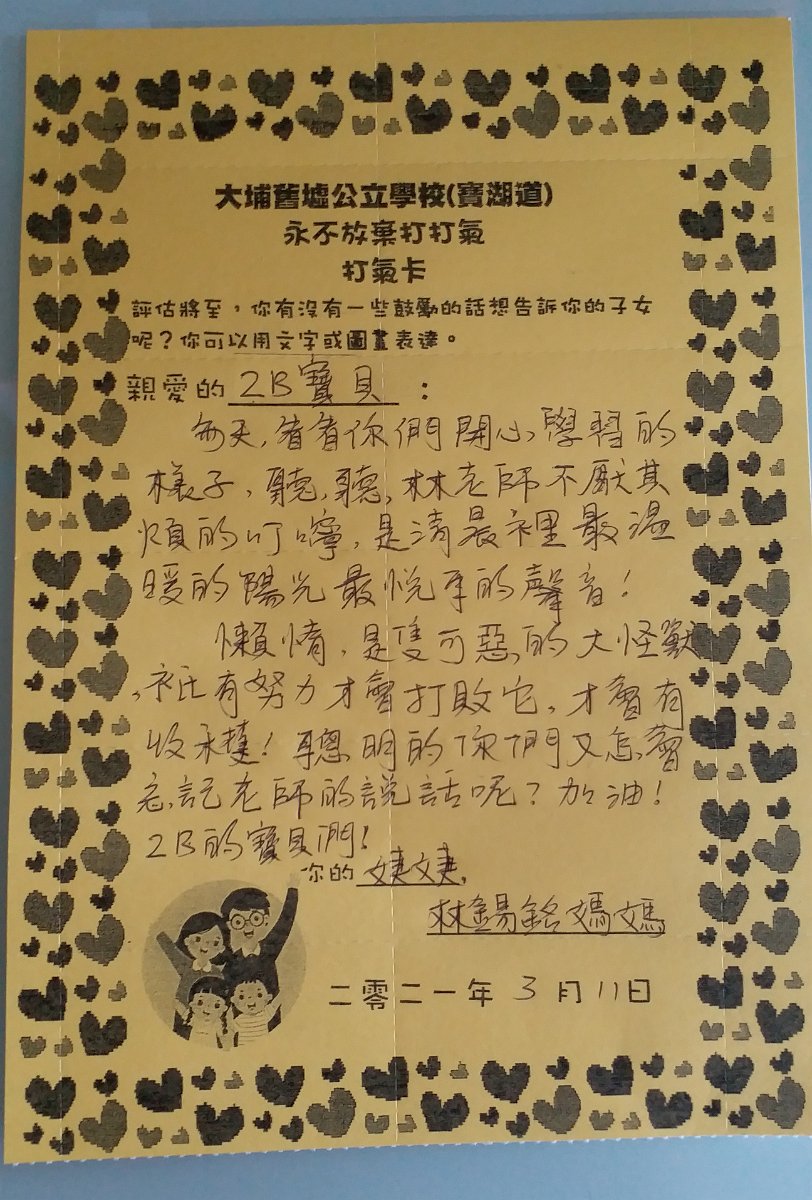 大埔舊墟公立學校(寶湖道)
永不放棄打打氣
打氣卡
評估將至，你有沒有一些鼓勵的話想告訴你的子女
呢？你可以用文字或圖畫表達。
親愛的 2B寶貝 ：
每天，看看你們開心學習的
樣子，聽，聽，林老師不厭其
煩的叮嚀，是清晨裡最溫
暖的陽光最悅耳的聲音！
懶惰，是隻可惡的大怪獸
，衹有努力才會打敗它，才會有
收穫！聰明的你們又怎會
忘記老師的說話呢？加油！
2B的寶貝們！
你的 婕婕，
林錫銘媽媽
二零二一年 3 月 11日